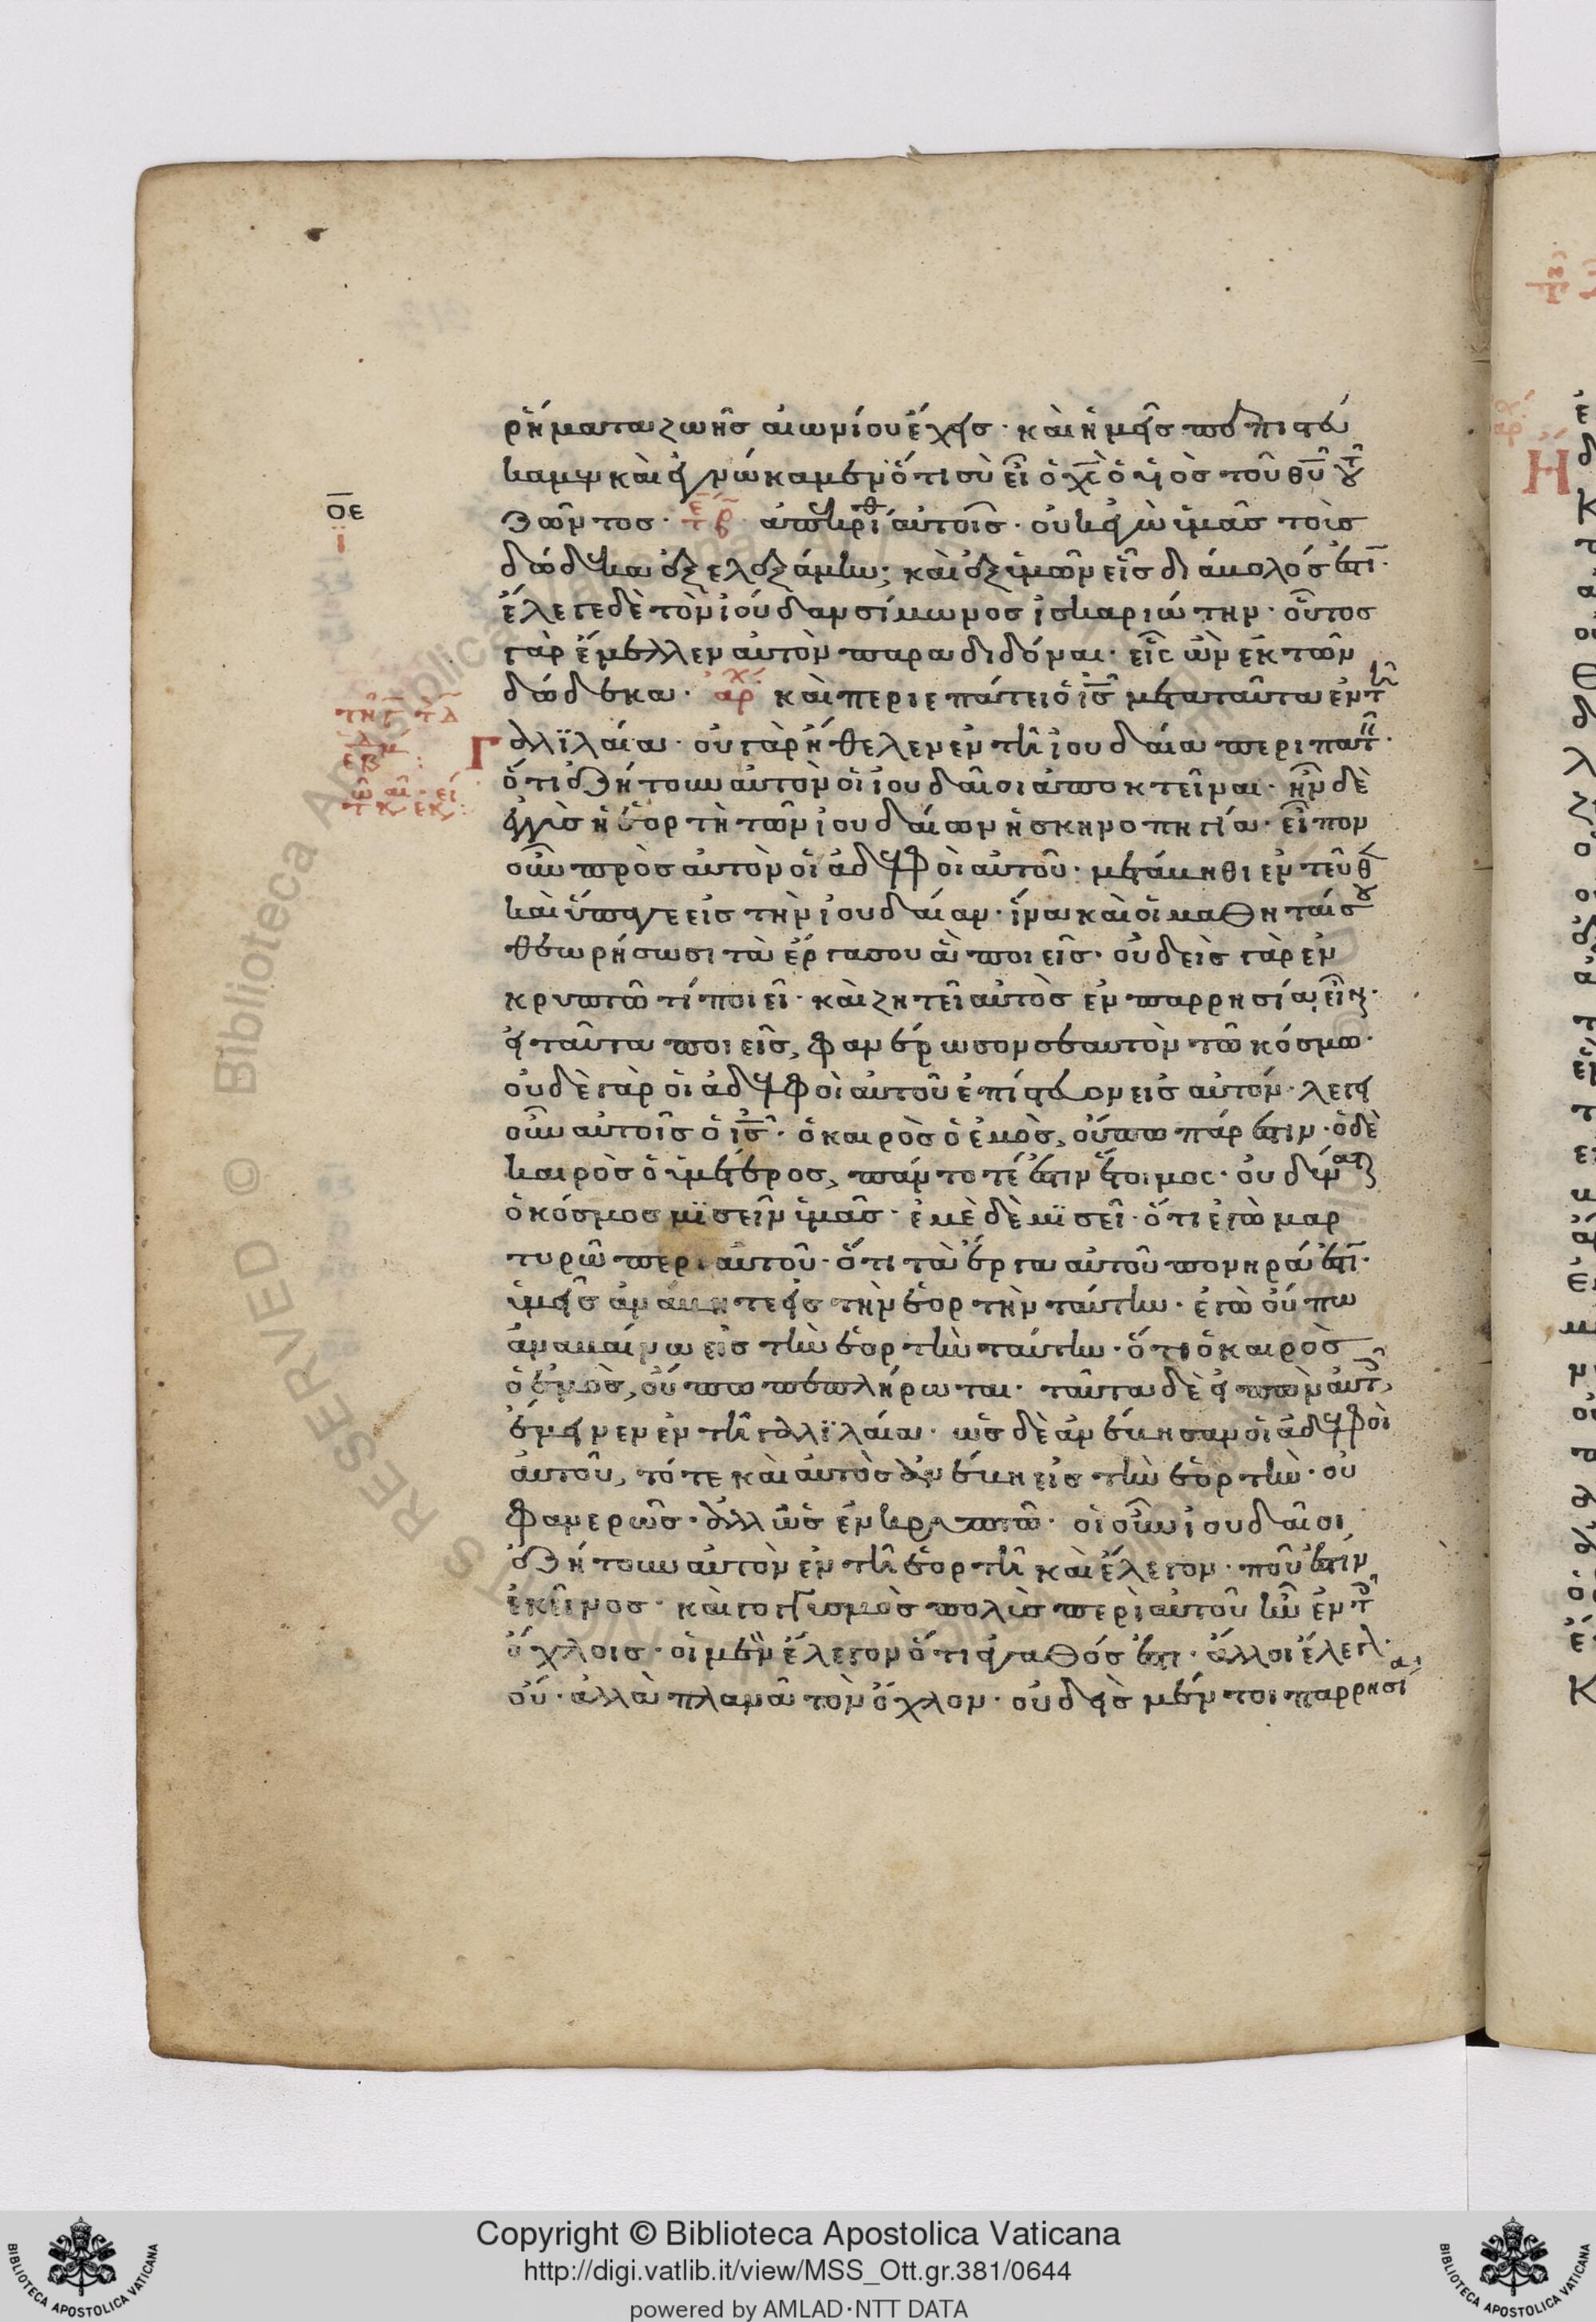 ῥήματα ζωῆς αἰωνίου ἔχεις· καὶ ἡμεῖς πεπιστεύ
καμεν καὶ ἐγνώκαμεν ὅτι σὺ εἶ ὁ χς ὁ υἱὸς τοῦ θυ τοῦ
οε
ζῶντος· ἀπεκρίθ αὐτοῖς· οὐκ ἐγὼ ὑμᾶς τοὺς
ι
δώδεκα ἐξελεξάμην; καὶ ἐξ ὑμῶν εἷς διάβολός ἐστι·
ἔλεγε δὲ τὸν ἰούδαν σίμωνος ἰσκαριώτην· οὗτος
γὰρ ἔμελλεν αὐτὸν παραδιδόναι· εἷς ὢν ἐκ τῶν
δώδεκα· αρχ καὶ περιεπάτει ὁ ις μετὰ ταῦτα ἐν τῆ
Γαλιλαία· οὐ γὰρ ἤθελεν ἐν τῆ ἰουδαία περιπατ·
ὅτι ἐζήτουν αὐτὸν οἱ ἰουδαῖοι ἀποκτεῖναι· ἦν δὲ
ἐγγὺς ἡ ἑορτὴ τῶν ἰουδαίων ἡ σκηνοπηγία· εἶπον
οὖν πρὸς αὐτὸν οἱ ἀδελφοὶ αὐτοῦ· μετάβηθι ἐντεῦθ
καὶ ὕπαγε εἰς τὴν ἰουδαίαν· ἵνα καὶ οἱ μαθηταί σου
θεωρήσωσι τὰ ἔργα σου ἃ ποιεῖς· οὐδεὶς γὰρ ἐν
κρυπτῶ τί ποιεῖ· καὶ ζητεῖ αὐτὸς ἐν παρρησία εἶναι·
εἰ ταῦτα ποιεῖς, φανέρωσον σεαυτὸν τῶ κόσμω·
οὐδὲ γὰρ οἱ ἀδελφοὶ αὐτοῦ ἐπίστευον εἰς αὐτόν· λέγει
οὖν αὐτοῖς ὁ ις· ὁ καιρὸς ὁ ἐμὸς, οὔπω πάρεστιν· ὁ δὲ
καιρὸς ὁ ὑμέτερος, πάντοτέ ἐστιν ἕτοιμος· οὐ δύναται
ὁ κόσμος μισεῖν ὑμᾶς· ἐμὲ δὲ μισεῖ· ὅτι ἐγὼ μαρ
τυρῶ περὶ αὐτοῦ· ὅτι τὰ ἔργα αὐτοῦ πονηρά ἐστι·
ὑμεῖς ἀνάβητε εἰς τὴν ἑορτὴν ταύτην· ἐγὼ οὔπω
ἀναβαίνω εἰς τὴν ἑορτὴν ταύτην· ὅτι ὁ καιρὸς
ὁ ἐμὸς, οὔπω πεπλήρωται· ταῦτα δὲ εἰπὼν αὐτ,
ἔμεινεν ἐν τῆ γαλιλαία· ὡς δὲ ἀνέβησαν οἱ ἀδελφοὶ
αὐτοῦ, τότε καὶ αὐτὸς ἀνέβη εἰς τὴν ἑορτὴν· οὐ
φανερῶς· ἀλλ ὡς ἐν κρυπτῶ· οἱ οὖν ἰουδαῖοι
ἐζήτουν αὐτὸν ἐν τῆ ἑορτῆ καὶ ἔλεγον· ποῦ ἐστιν
ἐκεῖνος· καὶ γογγυσμὸς πολὺς περὶ αὐτοῦ ἦν ἐν τ
ὄχλοις· οἱ μὲν ἔλεγον ὅτι ἀγαθός ἐστι· ἄλλοι ἔλεγ·
οὔ· ἀλλὰ πλανᾶ τὸν ὄχλον· οὐδεὶς μέντοι παρρησία
Copyright © Biblioteca Apostolica Vaticana
http://digi.vatlib.it/view/MSS_Ott.gr.381/0644
powered by AMLAD·NTT DATA